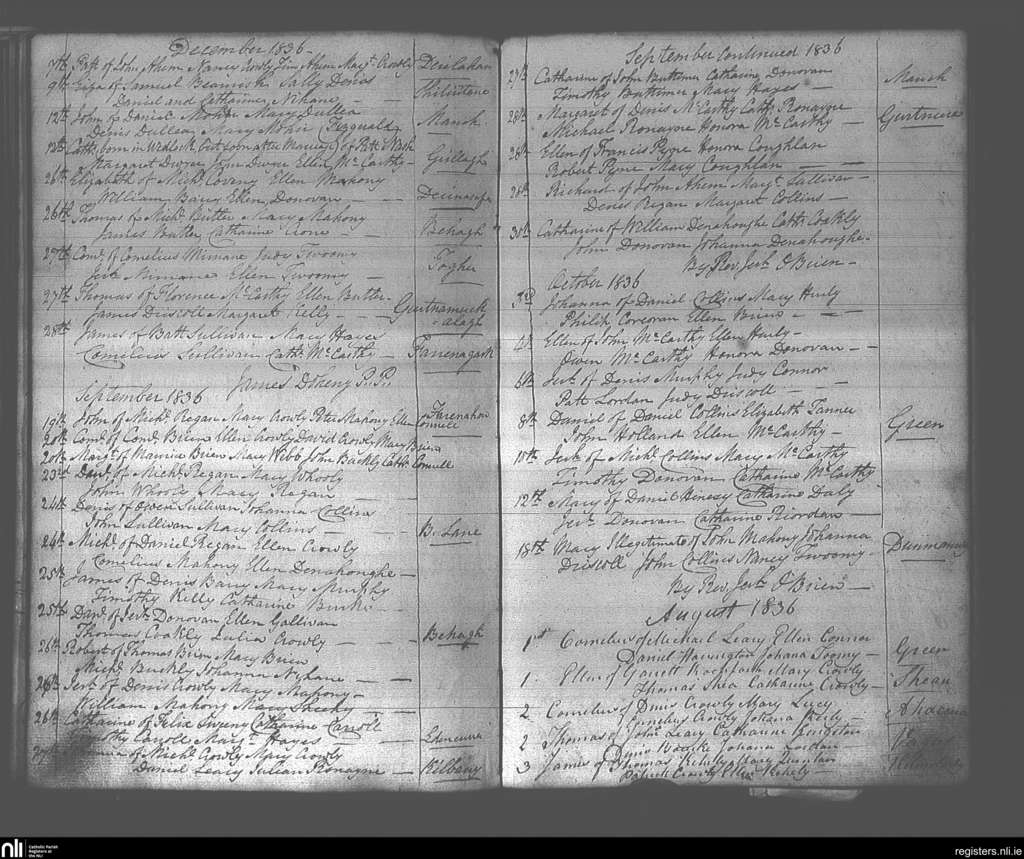 December 1836
7th Patk of John Ahern Nancy Crowly Tim Ahern Margt Crowly
9th Eliza of Samuel Beamish Sally Denis
Daniel and Catharine Nihane
12th John of Daniel Mary Dullea
Denis Dullea Mary Manch
12th Cath born in Wedlock but soon after Marriage of Patt
Margaret Dwyer John Dwyer Ellen McCarthy Gillagh
26th Elizabeth of Michl Coveny Ellen Mahony
William Barry Ellen Donovan
26th Thomas of Michl Butler Mary Mahony
James Butler Catharine Behagh
27th Corns of Cornelius Minnane Judy Twoomy
Jerh Minnane Ellen Twoomy Togher
27th Thomas of Florence McCarthy Ellen Butler
James Driscoll Margaret Kelly
28th James of Batt Sullivan Mary Hayes
Cornelius Sullivan Cathe McCarthy
James Doheny P.P.
September 1836
19th John of Michl Regan Mary Crowly Peter Mahony Ellen Connell
20th Corns of Corns Brien Ellen Crowly David Crowly Mary Brien
20th Margt of Maurice Brien Mary Webb John Buckly Cathe Connell
23rd Danl of Michl Regan Mary Whooly
John Whooly Mary Regan
24th Denis of Owen Sullivan Johanna Collins
John Sullivan Mary Collins B. Lane
24th Michl of Daniel Regan Ellen Crowly
Cornelius Mahony Ellen Denahoughe
25th James of Denis Barry Mary Murphy
Timothy Kelly Catharine Burke
25th Danl of Jerh Donovan Ellen Gallivan
Thomas Coakly Julia Crowly Behagh
26th Robert of Thomas Brien Mary Brien
Michl Buckly Johanna Nyhane
26th Jerh of Denis Crowly Mary Mahony
William Mahony Mary Sheehy
26th Catharine of Felix Sweeny Catharine Carroll
Carroll Margt Hayes
27th of Michl Crowly Mary Crowly
Daniel Leary Julian Ronayne Kilbarry
September Continued 1836
27th Catharine of John Buttimer Catharine Donovan
Timothy Buttimer Mary Hayes Manch
28th Margaret of Denis McCarthy Cathe Ronayne
Michael Ronayne Honora McCarthy
28th Ellen of Francis Pyne Honora Coughlan
Robert Pyne Mary Coughlan
28th Richard of John Ahern Margt Sullivan
Denis Regan Margaret Collins
30th Catharine of William Denahoughe Cathe Coakly
John Donovan Johanna Denahoughe
By Rev. Jerh O'Brien
October 1836
3rd Johanna of Daniel Collins Mary Hurly
Philip Corcoran Ellen Brien
4th Ellen of John McCarthy Ellen Hurly
Owen McCarthy Honora Donovan
6th Jerh of Denis Murphy Judy Connor
Patt Lordan Judy Driscoll
8th Daniel of Daniel Collins Elizabeth Tanner
John Holland Ellen McCarthy Green
10th Jerh of Michl Collins Mary McCarthy
Timothy Donovan Catharine McCarthy
12th Mary of Daniel Henesy Catharine Daly
Jerh Donovan Catharine Riordan
18th Mary Illegitimate of John Mahony Johanna
Driscoll John Collins Nancy Twoomy Dunmanway
By Rev. Jerh O'Brien
August 1836
1st Cornelius of Michael Leary Ellen Connor
Daniel Harrington Johana Toomy Green
1. Ellen of Garrett Mary Crowly
Thomas Shea Catharine Crowly Shean
2 Cornelius of Denis Crowly Mary Lucy
Cornelius Crowly Johana Reily
2 Thomas of John Leary Catharine
Denis Johana Lordan
3 James of Thomas Mary
Patrick Ellen
nli Catholic Parish Registers at the NLI
registers.nli.ie